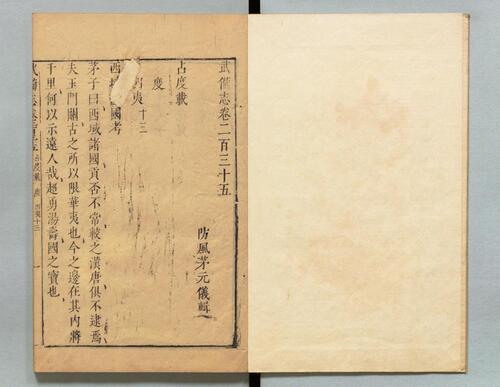 武備志卷二百三十五
防風茅元儀輯
占度載
度
夷十三
西國考
茅子曰西域諸國貢否不常較之漢唐俱不逮焉
夫玉門關古之所以限華夷也今之邊在其內將
千里何以示遠人哉趙勇湯壽國之寶也